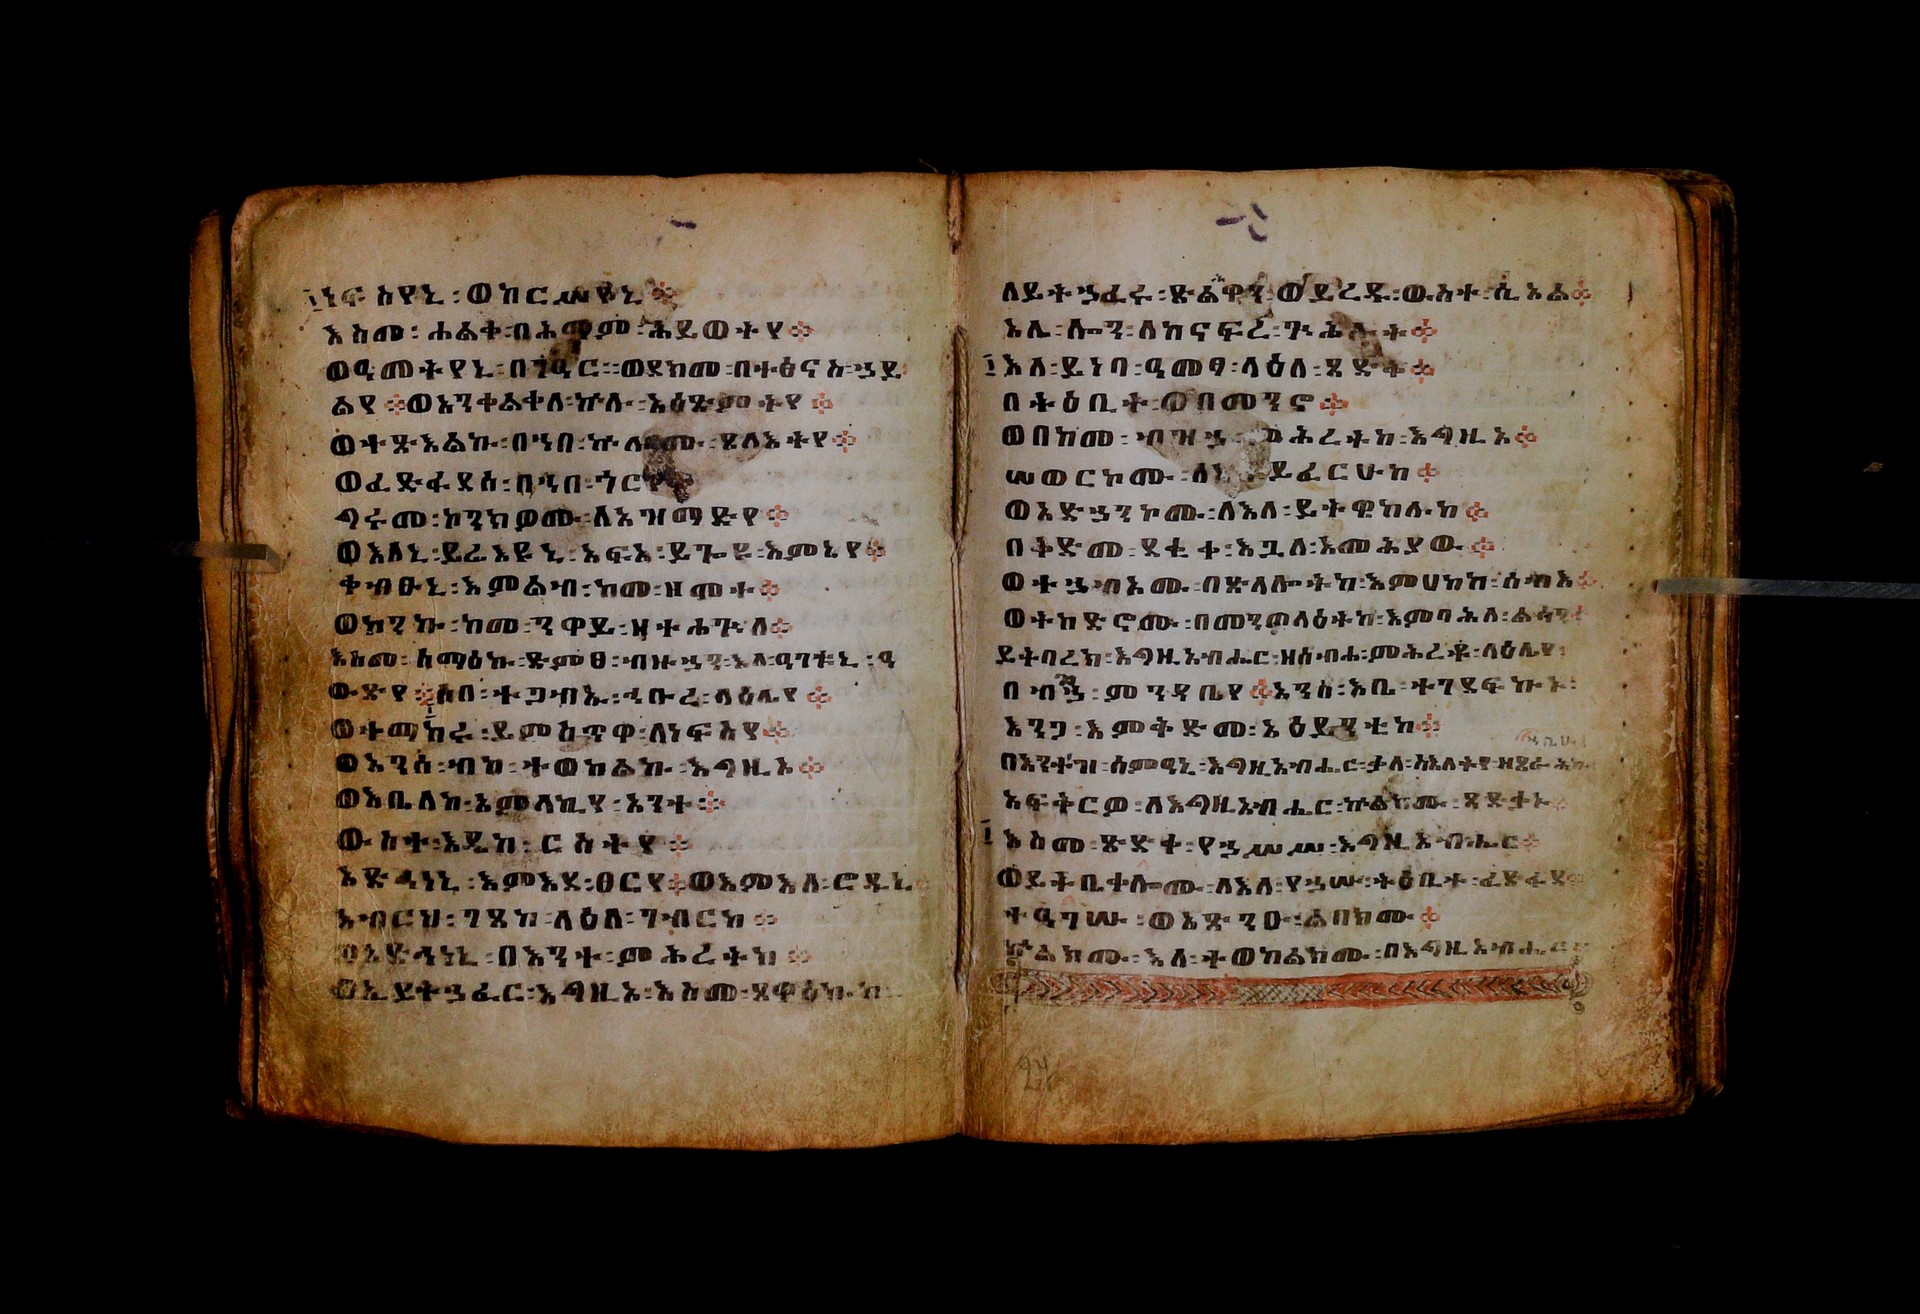 ነፍስየኒ ፡ ወከርሥየኒ ፨
እስመ ፡ ሐልቀ ፡ በሕማም ፡ ሕይወትየ ፨
ወዓመትየኒ ፡ በገዓር ፡ ወደክመ ፡ በተፅናስ ፡ ኃይ
ልየ ፨ ወአንቀልቀለ ፡ ኵሉ ፡ አዕፅምትየ ፨
ወተጽእልኩ ፡ በኀበ ፡ ኵሎሙ ፡ ጸላእትየ ፨
ወፈድፋደሰ ፡ በኀበ ፡ ጎርየ
ግሩመ ፡ ኮንክዎሙ ፡ ለአዝማድየ ፨
ወእለኒ ፡ ይሬእዩኒ ፡ አፍአ ፡ ይጐዩ ፡ እምኔየ ፨
ቀብፁኒ ፡ እምልብ ፡ ከመ ፡ ዘሞተ ፨
ወኮንኩ ፡ ከመ ፡ ንዋይ ፡ ዘተሐጕለ ፨
እስመ ፡ ሰማዕኩ ፡ ድምፀ ፡ ብዙኃን ፡ እለ ፡ ዓገቱኒ ፡ ዓ
ውድየ ፨ ሶበ ፡ ተጋብኡ ፡ ኅቡረ ፡ ላዕሌየ ፨
ወተማከሩ ፡ ይምስጥዋ ፡ ለነፍስየ ፨
ወአንሰ ፡ ብከ ፡ ተወከልኩ ፡ እግዚኦ ፨
ወእቤለከ ፡ አምላኪየ ፡ አንተ ፨
ውስተ ፡ እዴከ ፡ ርስትየ ፨
አድኅነኒ ፡ እምእደ ፡ ፀርየ ፨ ወእምእለ ፡ ሮዱኒ ፨
አብርህ ፡ ገጸከ ፡ ላዕለ ፡ ገብርከ ፨
ወአድኅነኒ ፡ በእንተ ፡ ምሕረትከ ፨
ወኢይትኃፈር ፡ እግዚኦ ፡ እስመ ፡ ጸዋዕኩከ
ለይትኃፈሩ ፡ ጽልዋን ፡ ወይረዱ ፡ ውስተ ፡ ሲኦል ፨
አሌሎን ፡ ለከናፍረ ፡ ጕሕሉት ፨
እለ ፡ ይነባ ፡ ዓመፃ ፡ ላዕለ ፡ ጻድቅ ፨
በትዕቢት ፡ ወበመንኖ ፨
ወበከመ ፡ ብዝኃ ፡ ምሕረትከ ፡ እግዚኦ ፨
ሠወርኮሙ ፡ ለእለ ፡ ይፈርሁከ ፨
ወአድኃንኮሙ ፡ ለእለ ፡ ይትዌከሉከ ፨
በቅድመ ፡ ደቂቀ ፡ እጓለ ፡ እመሕያው ፨
ወተኃብኦሙ ፡ በጽላሎትከ ፡ እምሀከከ ፡ ሰብእ ፨
ወተከድኖሙ ፡ በመንጦላዕትከ ፡ እምባሕለ ፡ ልሳን
ይትባረክ ፡ እግዚአብሔር ፡ ዘሰብሐ ፡ ምሕረቶ ፡ ላዕሌየ ፡
በብኃ ፡ ምንዳቤየ ፨ አንሰ ፡ እቤ ፡ ተገደፍኩ ፡
እንጋ ፡ እምቅድመ ፡ አዕይንቲከ ፨
በእንተዝ ፡ ሰምዓኒ ፡ እግዚአብሔር ፡ ቃለ ፡ ስእለትየ ፡
አፍቅርዎ ፡ ለእግዚአብሔር ፡ ኵልክሙ ፡ ጻድቃኑ ፨
እስመ ፡ ጽድቀ ፡ የኃሥሥ ፡ እግዚአብሔር ፨
ወይትቤቀሎሙ ፡ ለእለ ፡ የኃሡ ፡ ትዕቢተ ፡ ፈድፋደ
ተዓገሡ ፡ ወአጽንዑ ፡ ልበክሙ ፨
ኵልክሙ ፡ እለ ፡ ተወከልክሙ ፡ በእግዚአብሔር ፨
24